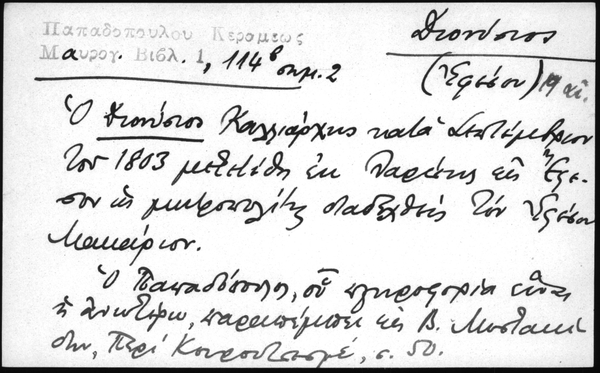 Παπαδοπουλου Κεραμεως
Μαυρογ. Βιβλ. 1, 114β σημ. 2
Διονύσιος
(Ἐφέσου) 19 αἰ.
Ὁ Διονύσιος Καλλιάρχης κατὰ Σεπτέμβριον
τοῦ 1803 μετετέθη ἐκ Λαρίσης εἰς Ἔφε-
σον ὡς μητροπολίτης διαδεχθεὶς τὸν Ἐφέσου
Μακάριον.
Ὁ Παπαδόπουλος, οὗ πληροφορία εἶναι
ἡ ἀνωτέρω, παραπέμπει εἰς Β. Μυστακί
δην, Περὶ Κουρουτσεσμέ, σ. 50.